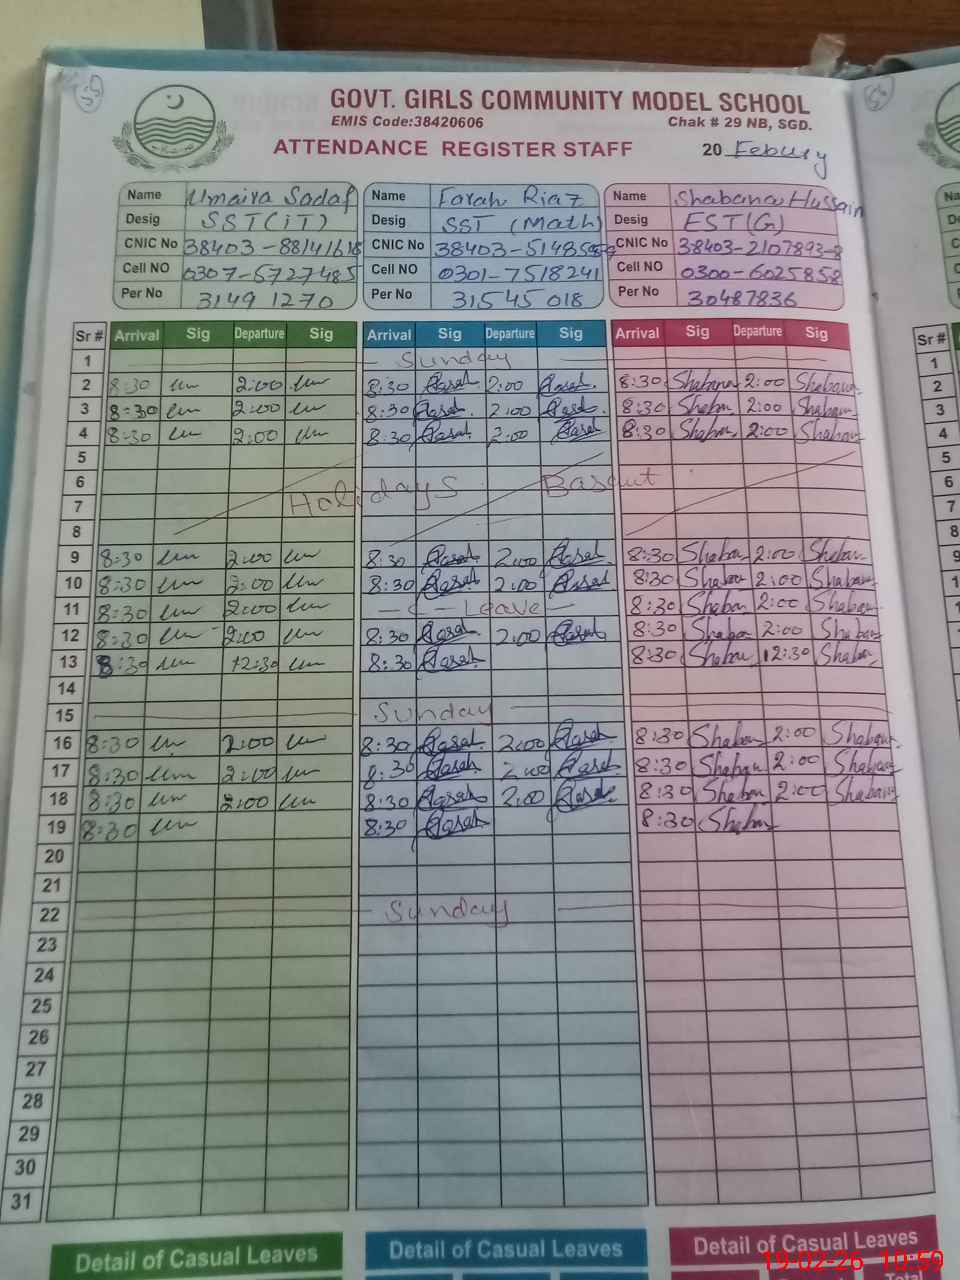 55
GOVT. GIRLS COMMUNITY MODEL SCHOOL
EMIS Code:38420606 Chak # 29 NB, SGD.
ATTENDANCE REGISTER STAFF 20 Febury
Name Umaira Sadaf Name Farah Riaz Name Shabana Hussain
Desig SST(iT) Desig SST (Math) Desig EST(G)
CNIC No 38403-88141618 CNIC No 38403-5148 CNIC No 38403-2107893-8
Cell NO 0307-5727485 Cell NO 0301-7518241 Cell NO 0300-6025858
Per No 31491270 Per No 31545018 Per No 30487836
Sr # Arrival Sig Departure Sig Arrival Sig Departure Sig Arrival Sig Departure Sig Sr #
1 Sunday 1
2 8:30 2:00 8:30 2:00 8:30 Shabana 2:00 Shabana 2
3 8:30 2:00 8:30 2:00 8:30 Shaban 2:00 Shaban 3
4 8:30 2:00 8:30 2:00 8:30 Shaban 2:00 Shaban 4
5 5
6 Holidays Basant 6
7 7
8 8
9 8:30 2:00 8:30 2:00 8:30 Shaban 2:00 Shaban 9
10 8:30 2:00 8:30 2:00 8:30 Shaban 2:00 Shaban 10
11 8:30 2:00 - C - Leave - 8:30 Shaban 2:00 Shaban
12 8:30 2:00 8:30 2:00 8:30 Shaban 2:00 Shaban
13 8:30 12:30 8:30 8:30 Shaban 12:30 Shaban
14
15 Sunday
16 8:30 2:00 8:30 2:00 8:30 Shaban 2:00 Shaban
17 8:30 2:00 8:30 2:00 8:30 Shaban 2:00 Shaban
18 8:30 2:00 8:30 2:00 8:30 Shaban 2:00 Shaban
19 8:30 8:30 8:30 Shaban
20
21
22 Sunday
23
24
25
26
27
28
29
30
31
Detail of Casual Leaves Detail of Casual Leaves Detail of Casual Leaves
19-02-26 10:59